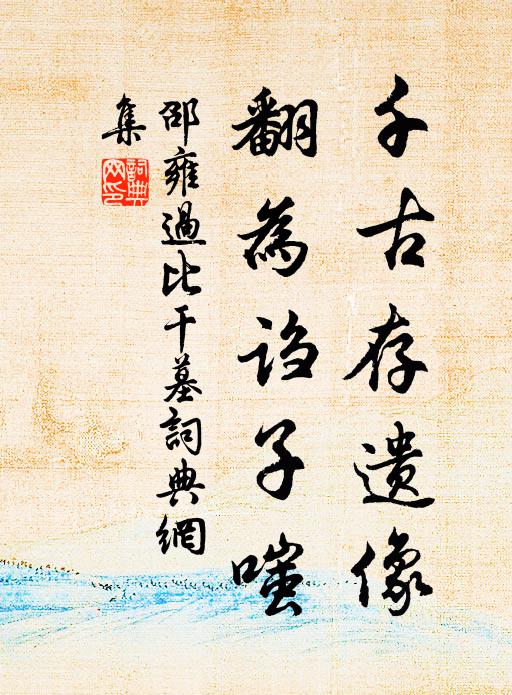 千古存遗像
翻為谄子嗤
邵雍過比干墓詞典網
集
詞典
网印